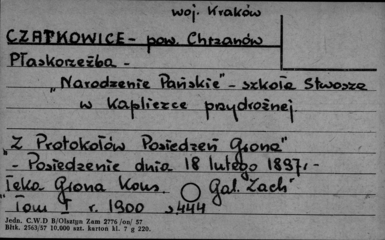 woj. Kraków
CZATKOWICE - pow. Chrzanów
Płaskorzeźba -
„Narodzenie Pańskie" - szkoła Stwosza
w kapliczce przydrożnej.
„Z Protokołów Posiedzeń Grona"
- Posiedzenie dnia 18 lutego 1897r -
„Teka Grona Kons. Gal. Zach"
Tom I r. 1900 s 444
Jedn. C.W.D B/Olsztyn Zam 2776 /on/ 57
Błtk. 2563/57 10.000 szt. karton kl. 7 g 220.